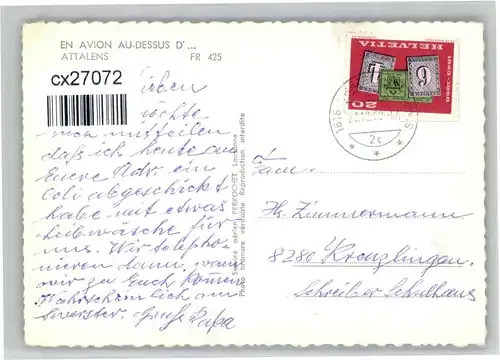 EN AVION AU-DESSUS D'...
ATTALENS FR 425
cx27072
Lieben
möchte
euch mitteilen
daß ich heute an
Euere Adr. ein
Coli abgeschickt
habe mit etwas
Leibwäsche für
uns. Wir telepho-
nieren dann, wann
wir zu Euch kommen
Wahrscheinlich am
Silvester. Gruß Papa
Service aérien PERROCHET Lausanne
Photo bromure véritable Reproduction interdite
HELVETIA
1843-1968
20
1616
2c
Fam.
Hs. Zimmermann
8280 Kreuzlingen
Schreiber Schulhaus